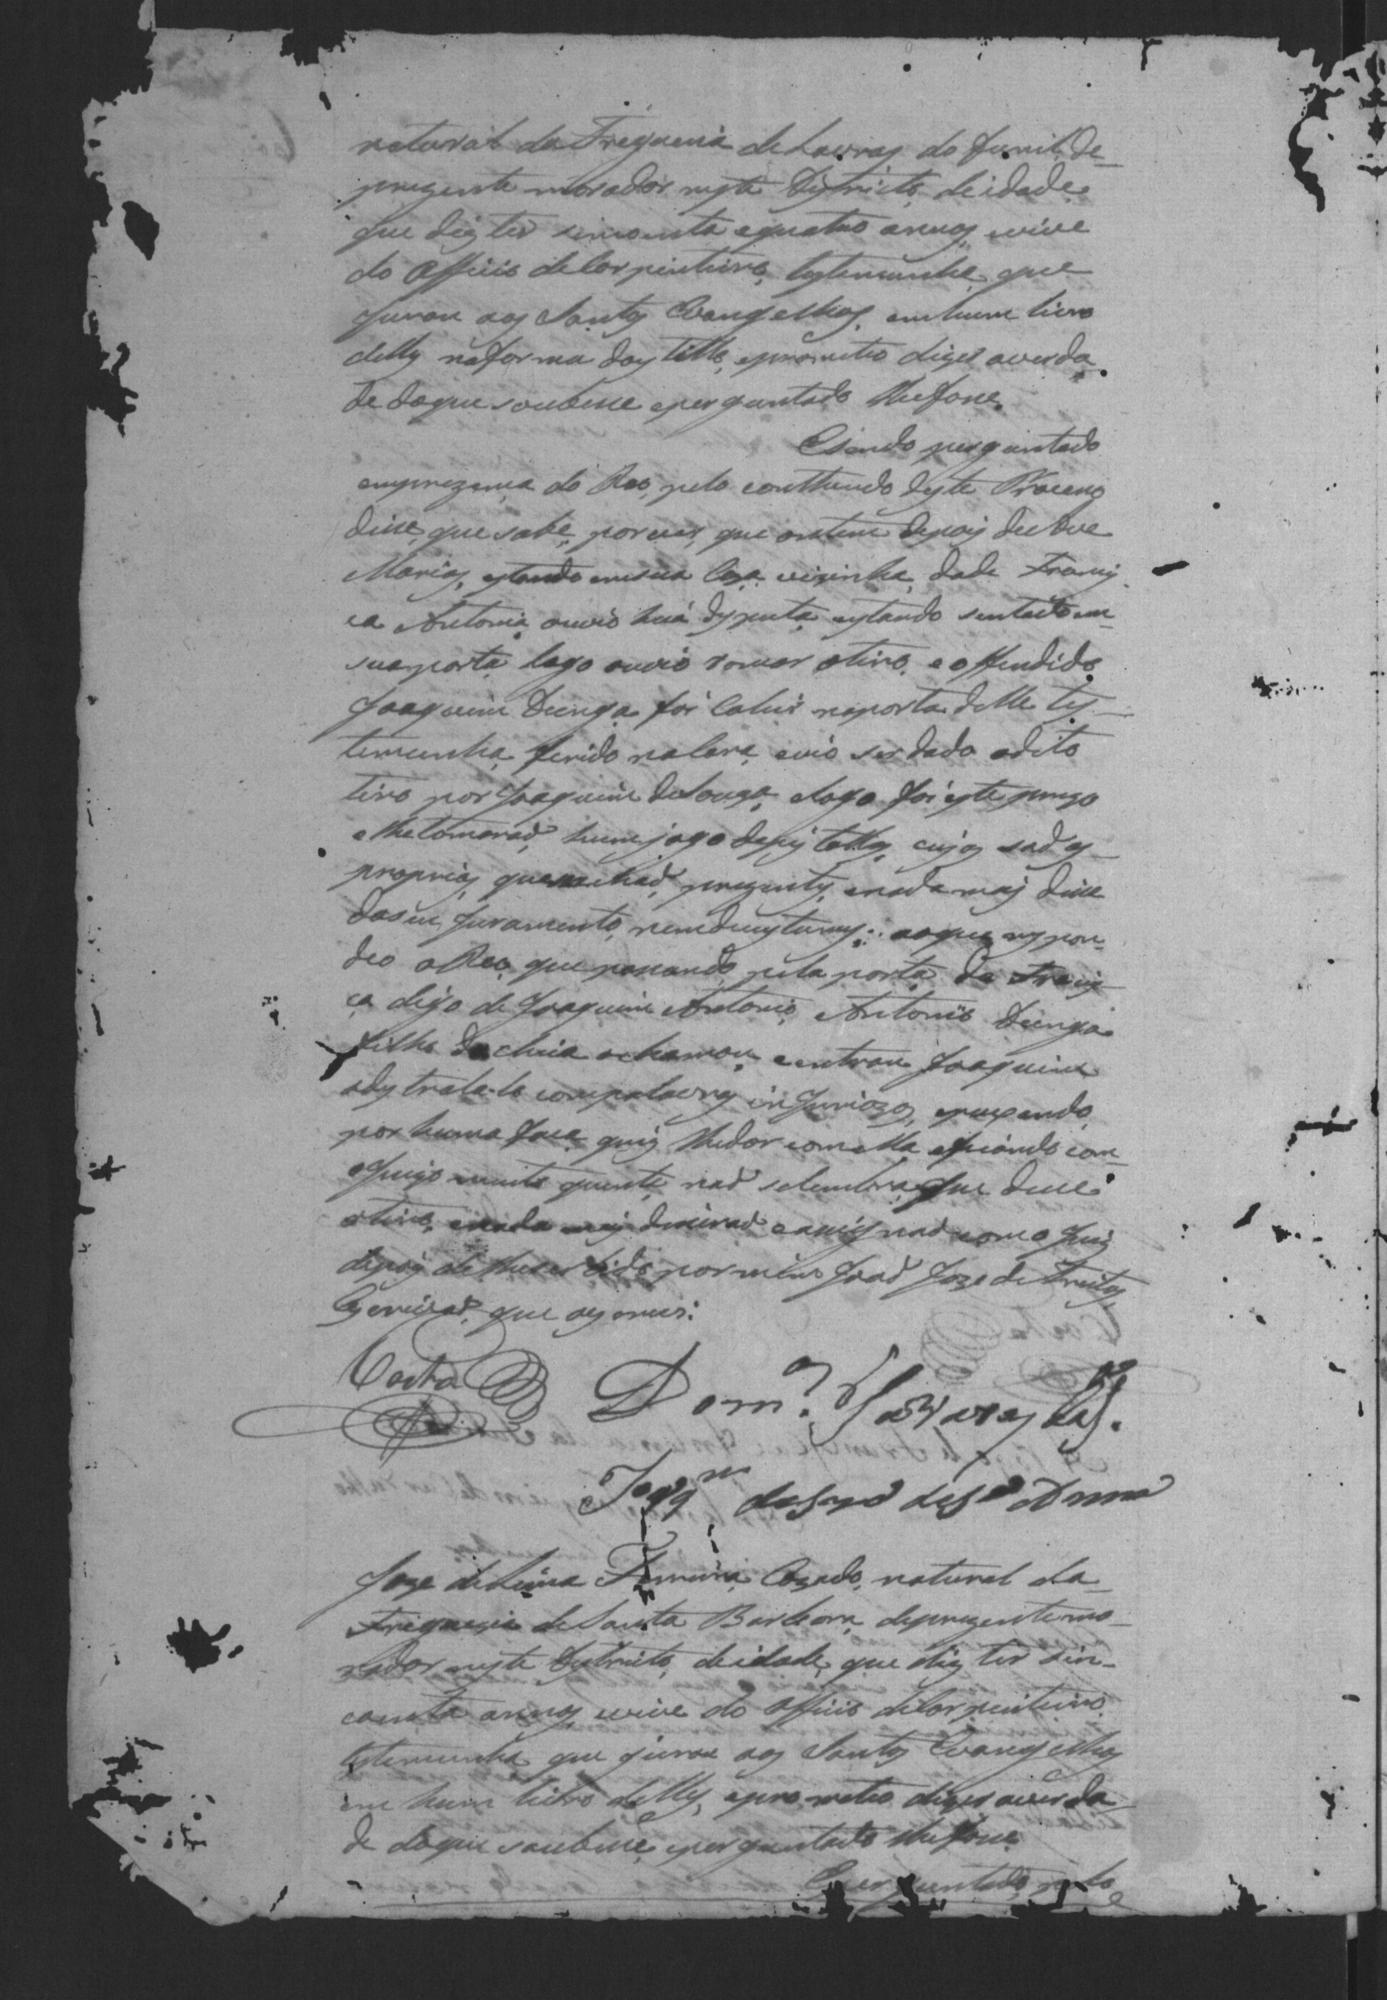 natural da Freguezia de Lavras do Funil de
prezente morador neste Destricto de idade
que diz ter sincoenta e quatro annos, vive
do officio de Carpinteiro, testemunha que
jurou aos Santos Evangelhos, em hum livro
delles na forma dos titlo, e prometeo dizer a verda
de do que soubesse e perguntado lhe fosse.
E sendo perguntado
em prezença do Reo, pelo conthendo deste Processo
disse, que sabe, por ver, que ontem depois de Ave
Marias, estando em sua Caza vezinha, da de Francis
ca Antonia, ouvio huã desputa, estando sentado em
sua porta, logo ouvio soar o tiro, e o offendido
Joaquim Dunga foi cahir na porta delle tes
temunha, ferido na Cara, e vio ser dado o dito
tiro por Joaquim de Souza, e logo foi este prezo
e lhe tomarad, hum jogo de pistollas, cujos sad os
proprios, que se achad, prezentes, e nada mais disse
do seu juramento, nem do custumes: ao que respon
deo o Reo, que passando, pela porta, da Francis
ca digo de Joaquim Antonio, Antonio Dunga
filho da cheia o chamou, e entrou Joaquim
a destrata-lo com palavras injuriozas, e puxando
por huma faca, quis lhe dar com ella, e ficando com
o juizo muito quente, nad se lembra, que desse
o tiro, e nada mais disserad e assignad com o Juiz
depois de lhes ser lido, por mim Joad Joze de Freitas,
Escrivad, que o escrevi:
Costa Dom.os Tavares
Joaq.m de Souza
Joze de Lima Ferreira, Cazado, natural da
Freguezia de Santa Barbara, de prezente mo
rador neste Destricto, de idade, que diz ter sin
coenta annos, vive do officio de Carpinteiro
testemunha que jurou aos Santos Evangelhos
em hum livro delles, e prometeo dizer a verda
de do que soubesse, e perguntado lhe fosse
E perguntado, pelo